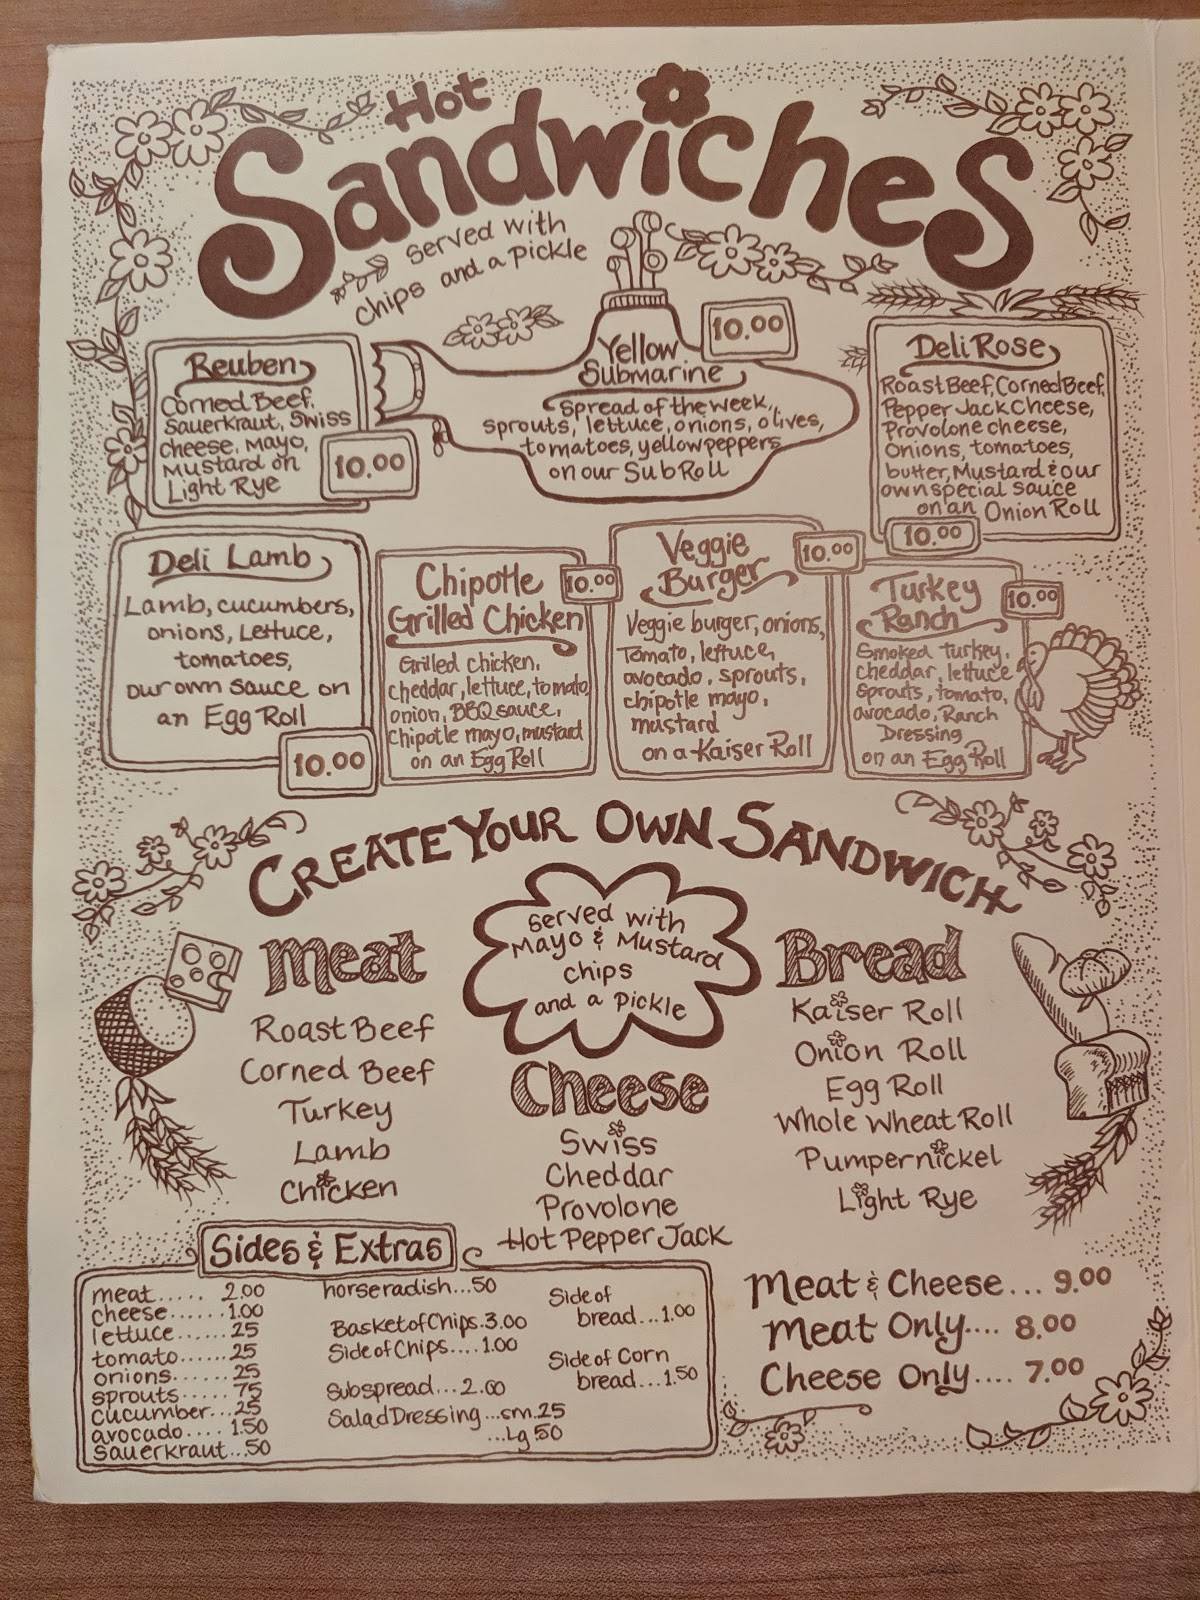 Hot
Sandwiches
served with
chips and a pickle
Reuben
Corned Beef,
Sauerkraut, Swiss
cheese, Mayo,
Mustard on
Light Rye
10.00
Yellow
Submarine
10.00
Spread of the week,
sprouts, lettuce, onions, olives,
tomatoes, yellow peppers
on our Sub Roll
Deli Rose
Roast Beef, Corned Beef,
Pepper Jack Cheese,
Provolone cheese,
Onions, tomatoes,
butter, Mustard & our
own special sauce
on an Onion Roll
10.00
Deli Lamb
Lamb, cucumbers,
onions, Lettuce,
tomatoes,
our own sauce on
an Egg Roll
10.00
Chipotle
Grilled Chicken
10.00
Grilled chicken,
cheddar, lettuce, tomato,
onion, BBQ sauce,
Chipotle mayo, mustard
on an Egg Roll
Veggie
Burger
10.00
Veggie burger, onions,
Tomato, lettuce,
avocado, sprouts,
chipotle mayo,
mustard
on a Kaiser Roll
Turkey
Ranch
10.00
Smoked turkey,
cheddar, lettuce
sprouts, tomato,
avocado, Ranch
Dressing
on an Egg Roll
CREATE YOUR OWN SANDWICH
served with
Mayo & Mustard
chips
and a pickle
Meat
Roast Beef
Corned Beef
Turkey
Lamb
Chicken
Cheese
Swiss
Cheddar
Provolone
Hot Pepper Jack
Bread
Kaiser Roll
Onion Roll
Egg Roll
Whole Wheat Roll
Pumpernickel
Light Rye
Sides & Extras
meat..... 2.00
cheese...... 1.00
lettuce...... 25
tomato......25
onions...... 25
sprouts..... 75
cucumber...25
avocado.... 1.50
sauerkraut...50
horseradish...50
Basket of Chips.3.00
Side of Chips.... 1.00
Subspread...2.00
Salad Dressing...sm.25
...Lg 50
Side of
bread...1.00
Side of Corn
bread...1.50
Meat & Cheese... 9.00
Meat Only.... 8.00
Cheese Only.... 7.00